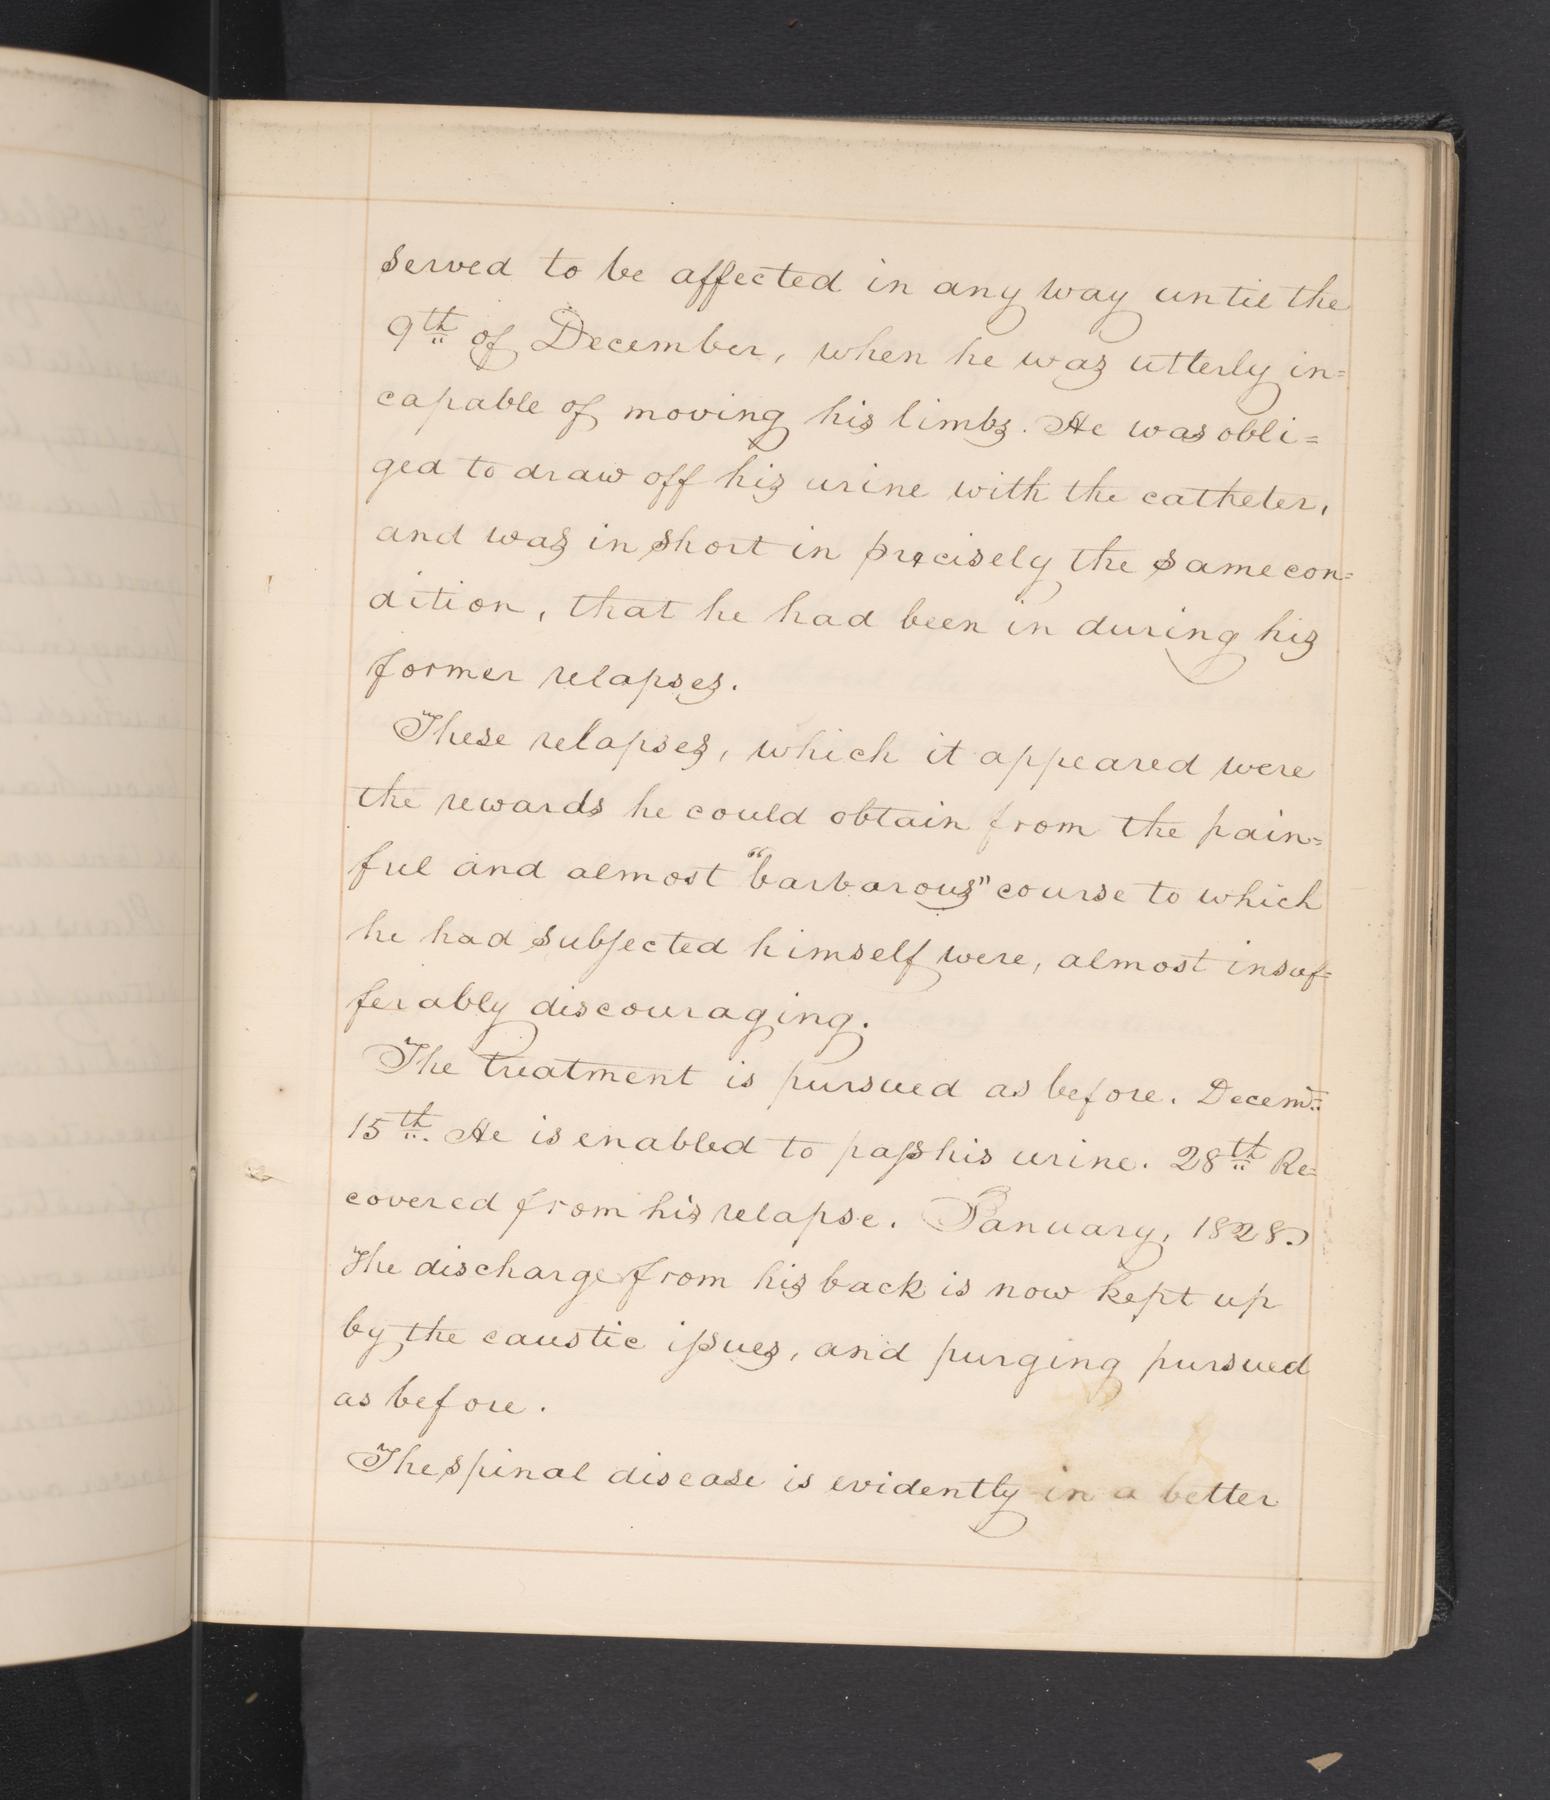 served to be affected in any way until the
9th of December, when he was utterly in=
capable of moving his limbs. He was obli=
ged to draw off his urine with the catheter,
and was in short in precisely the same con=
dition, that he had been in during his
former relapses.
These relapses, which it appeared were
the rewards he could obtain from the pain=
ful and almost "barbarous" course to which
he had subjected himself were, almost insuf=
ferably discouraging.
The treatment is pursued as before. Decem.
15th. He is enabled to pass his urine. 28th Re=
covered from his relapse. January, 1828.
The discharge from his back is now kept up
by the caustic issues, and purging pursued
as before.
The spinal disease is evidently in a better